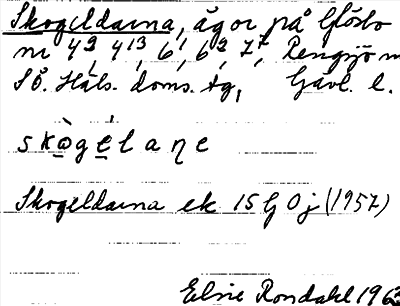 Skogeldarna, ägor på Glösbo
nr 4², 4¹³, 6¹, 6², 7⁷, Rengsjö
S Ö. Häls. doms. tg, Gävl. l.
skògélaṇe
Skogeldarna ek 15G 0j (1957)
Elsie Rondahl 1962